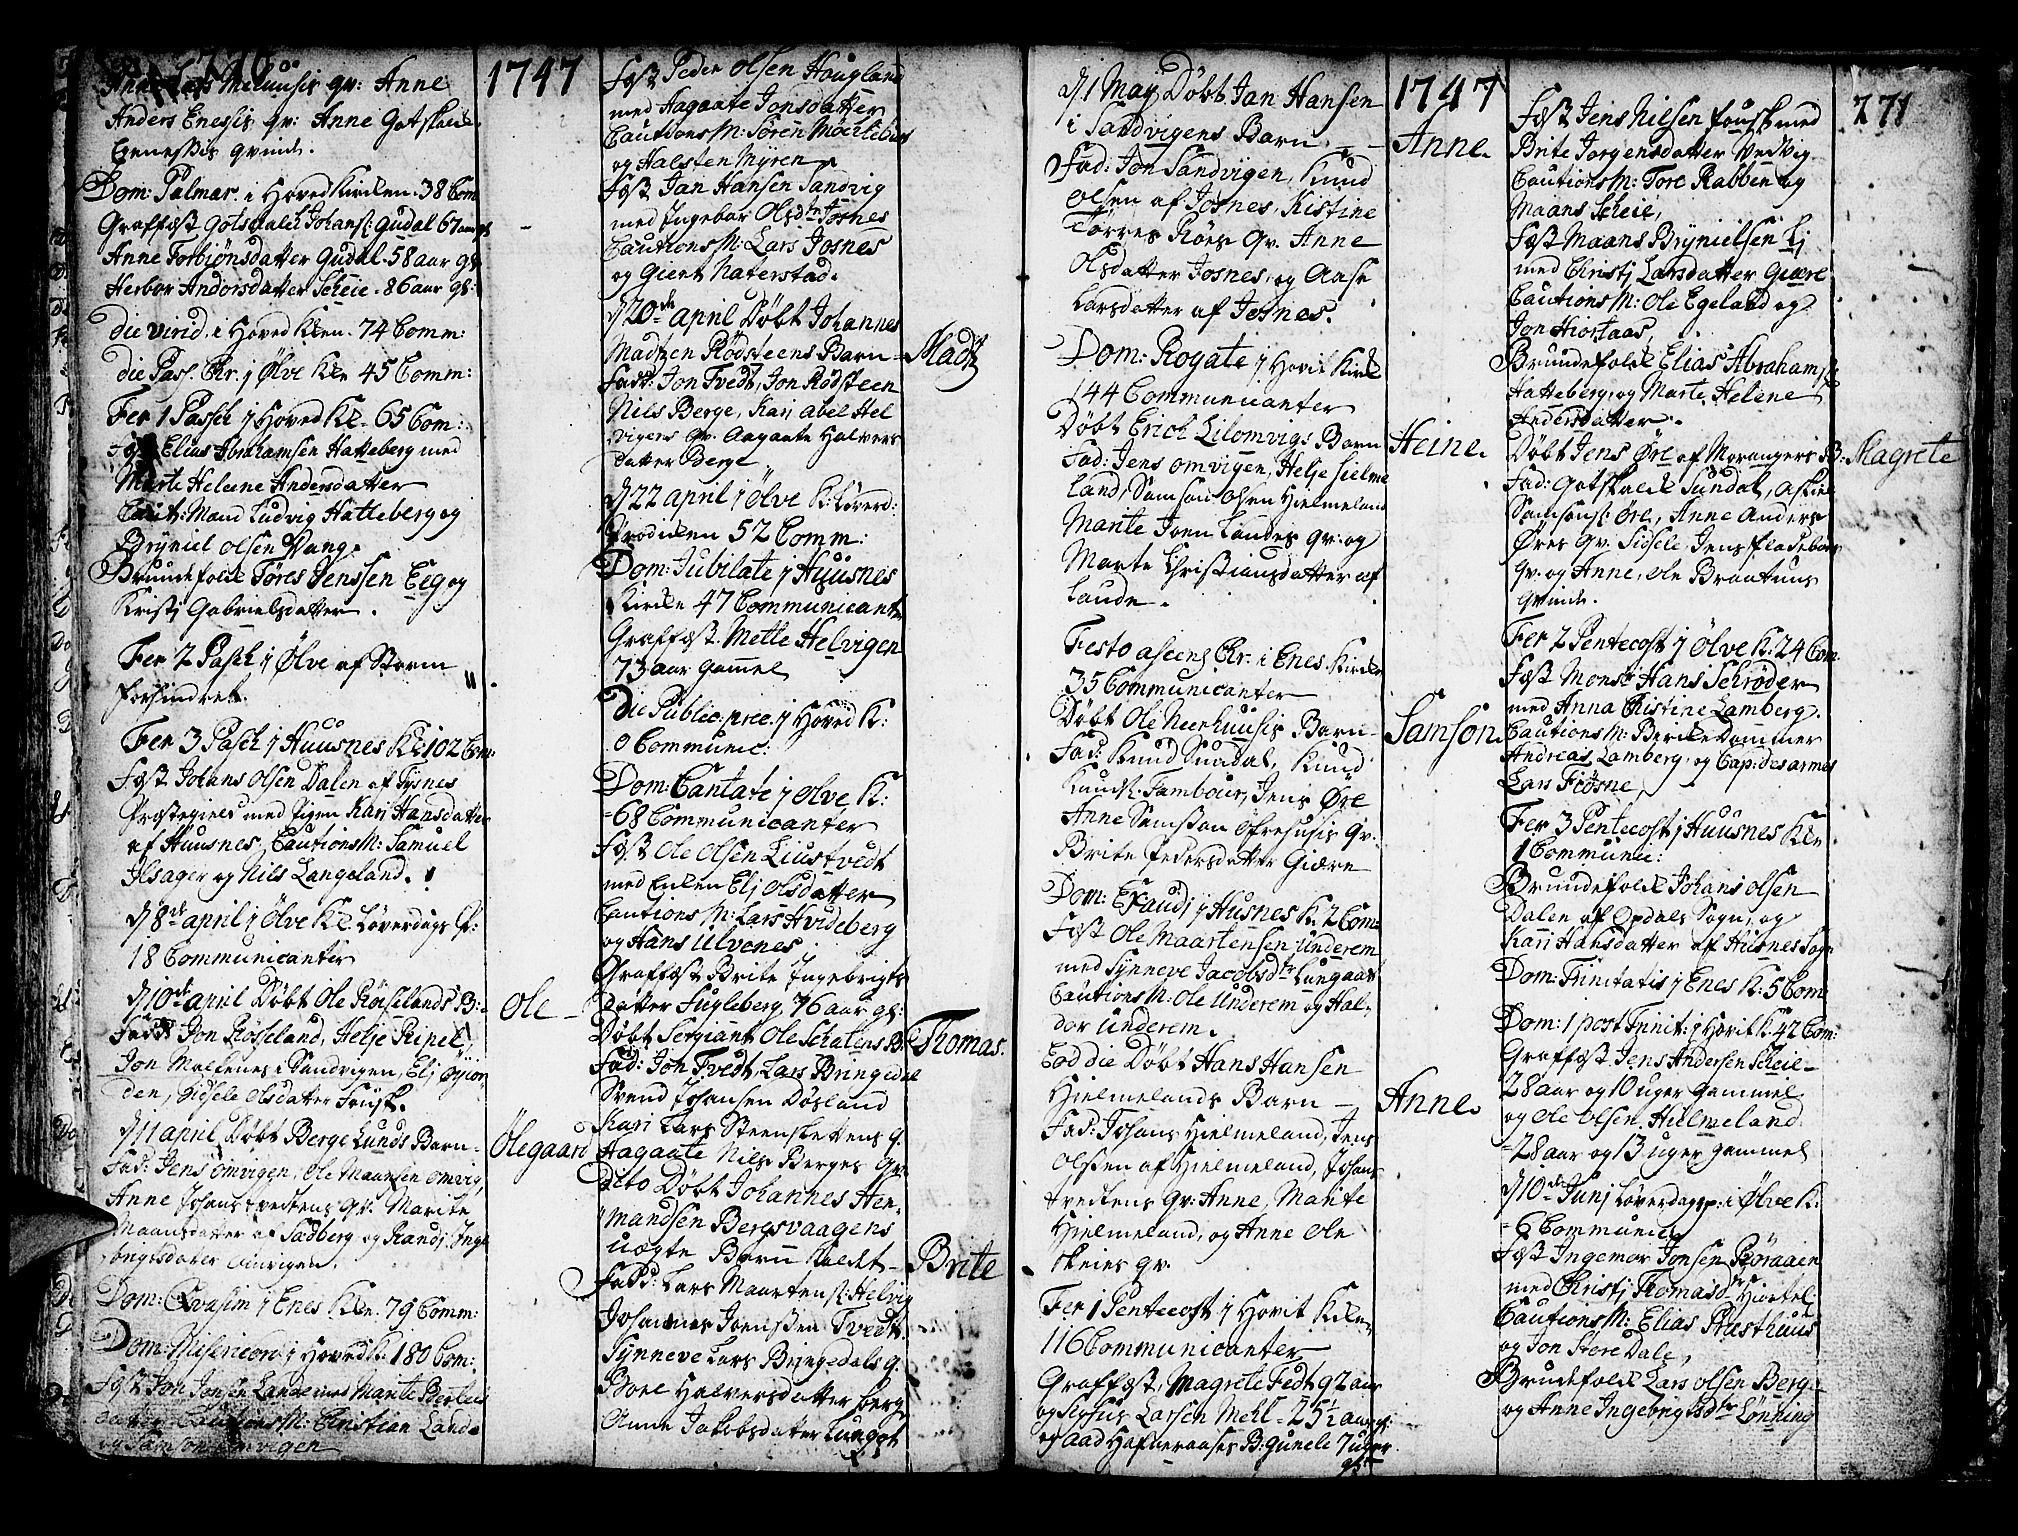 1747
Anders Enesis qv: Anne Gotskalk
Qvinde.
Dom: Palmar. i Hoved Kirken. 38 Com
Graffæst Gotskalck Johans: Gudal 67 aar gl
Anne Torbiønsdatter Gudal. 58 aar gl.
Herbor Andorsdatter Scheie. 86 aar gl:
die virid. i Hoved Kken. 74 Comm:
die Pas. Chr. j Ølve Kke 45 Comm:
Fer 1 Pasch j Hoved Kk. 65 Com:
Fæst Elias Abrahamsen Hatteberg med
Marte Helene Andersdatter
Caut: Mænd Ludvig Hatteberg og
Bryniel Olsen Vang.
Brudefolck Tøres Jenssen Eeg og
Kristj Gabrielsdatter.
Fer 2 Pasch j Ølve af Storm
forhindret.
Fer 3 Pasch j Huusnes Kk 102 Com:
Fæst Johans Olsen Dalen af Tysnes
Præstegield med Pigen Kari Hansdatter
af Huusnes, Cautions M: Samuel
Ilsager og Nils Langeland.
d 8de april j Ølve Kk. Løverdags Pr:
18 Communicanter
d 10de april Døbt Ole Røsselands B: Ole
Fadd: Jon Røsseland, Helje Ripel,
Jon i Sandvigen, Elj Øyior
den, Sidsele Olsdatter Fousk.
d 11 april Døbt Berge Lunds Barn Ølegaard
Fad: Jens Omvigen, Ole Maansen Omvig,
Anne Johans Tvedtens Qv. Marite
Maansdatter af Sadberg og Randj Inge
brigtsdatter Omvigen.
Dom: Qvasim j Enes Kke. 79 Comm:
Dom: Misericord j Hoved K. 180 Com:
Fæst Jon Jonsen Lande med Marite
datter Cautions M: Christian Lande
og Samson Omvigen
Fæst Peder Olsen Hougland
med Aagaate Jonsdatter
Cautions M: Søren
og Halsten Myren
Fæst Jan Hansen Sandvig
med Ingebor Olsdtr Josnes
Cautions M: Lars Josnes
og Giert Naterstad.
d 20de april Døbt Johannes
Madtzen Rødsteens Barn Madtz
Fadd: Jon Tvedt, Jon Rødsteen
Nils Berge, Kari Abel Hel
vigens Qv. Aagaate Halvors
datter Berge
d 22 april j Ølve K: Løverd:
Prediken 52 Comm:
Dom: Jubilate j Huusnes
Kirke 47 Communicant
Graffæst. Mette Helvigen
73 aar gamel
Die Public: prec: j Hoved K:
0 Communic:
Dom: Cantate j Ølve K:
68 Communicanter
Fæst Ole Olsen Liustvedt
med Enken Elj Olsdatter
Cautions M: Lars Hvideberg
og Hans Ulvenes
Graffæst Brite Ingebrigts
datter Fugleberg 76 aar gl:
Døbt Sergiant Ole Schatens B: Thomas.
Fad: Jon Tvedt, Lars Bringedal
Svend Johansen Døsland
Kari Lars Steenslettens Q.
Aagaate Nils Berges Qv.
Dito Døbt Johannes Hen
mandsen Bergsvaagens
uægte Barn kaldt Brite
Fadd: Lars Maartens: Helvig
Johannes Joenssen Tvedt.
Synneve Lars Bringedals Q.
Boel Halversdatter Berge
Anne Jakobsdatter Lungot
1747
d 1 May Døbt Jan Hansen
i Sandvigens Barn Anne.
Fad: Jon Sandvigen, Knud
Olsen af Josnes, Kistine
Torres Røes Qv. Anne
Olsdatter Josnes, og Aase
Larsdatter af Josnes.
Dom: Rogate j Hovit Kirke
144 Communicanter
Døbt Erich Lilomvigs Barn Heine.
Fad: Jens Omvigen, Helje Hielme
land, Samson Olsen Hielmeland
Marite Joen Landes Qv. og
Marte Christiansdatter af
Lande.
Festo Ascens Chr. i Enes Kirke
35 Communicanter
Døbt Ole Neerhuusis Barn Samson.
Fad: Knud Sundal, Knud
Knuds. Tambour, Jens Øre
Anne Samsson Øfrehusis Qv.
Brite Pedersdatter Giære
Dom: Exaudj j Husnes K: 2 Com:
Fæst Ole Maartensen Underem
med Synneve Jacobsdtr Lungaas
Cautions M: Ole Underem og Hal
dor Underem.
Eod die Døbt Hans Hansen
Hielmelands Barn Anne.
Fad: Johans Hielmeland, Jens
Olssen af Hielmeland, Johans
Tvedtens Qv: Anne, Marite
Hielmeland, og Anne Ole
Skeies Qv.
Fer 1 Pentecost j Hovit Kken
116 Communicanter
Graffæst, Magrete Fedt 92 aar
og Larsen Mehl 25½ aar gl:
og Aad Hafneraases B: Gunele 7 uger
gl:
271
Fæst Jens Nilsen Fousk med
Brite Jorgensdatter Vedvig
Cautions M: Tore Rabben og
Maans Scheie,
Fæst Maans Brynielsen Lj
med Christj Larsdatter Giære
Cautions M: Ole Egeland og
Jon Hiortaas,
Brudefolck Elias Abrahamsen
Hatteberg og Marte Helene
Andersdatter.
Døbt Jens Øre af Morangers B: Magrete
Fad: Gotskalck Sundal, Askiel
Samsons: Øre, Anne Anders
Øres Qv. Sidsele Jens Fladebøes
Qv. og Anne, Ole Braatuns
Qvinde.
Fer 2 Pentecost j Ølve K: 24 Com.
Fæst Monsr Hans Schrøder
med Anna Christine Lamberg.
Cautions M: Bircke Dommer
Andreas Lamberg, og Cap:desarmes
Lars Fiøsne,
Fer 3 Pentecost j Huusnes Kke
1 Commune:
Brudefolck Johans Olsen
Dalen af Opdals Sogn, og
Kari Hansdatter af Husnes Sogn
Dom: Trinitatis j Enes K: 5 Com
Dom: 1 post Trinit: j Hovit K: 42 Com:
Graffæst Jens Andersen Scheie
28 aar og 10 uger gammel
og Ole Olsen Hielmeland
28 aar og 13 uger gammel
d 10de Junj Løverdags p: i Ølve K:
6 Communic
Fæst Ingemor Jonsen Røraaen
med Christj Thomasdtr Hiortel
Cautions M: Elias Præsthuus
og Jon Store Dale,
Brudefolck Lars Olsen Berg
og Anne Ingebrigtsdtr Lønning